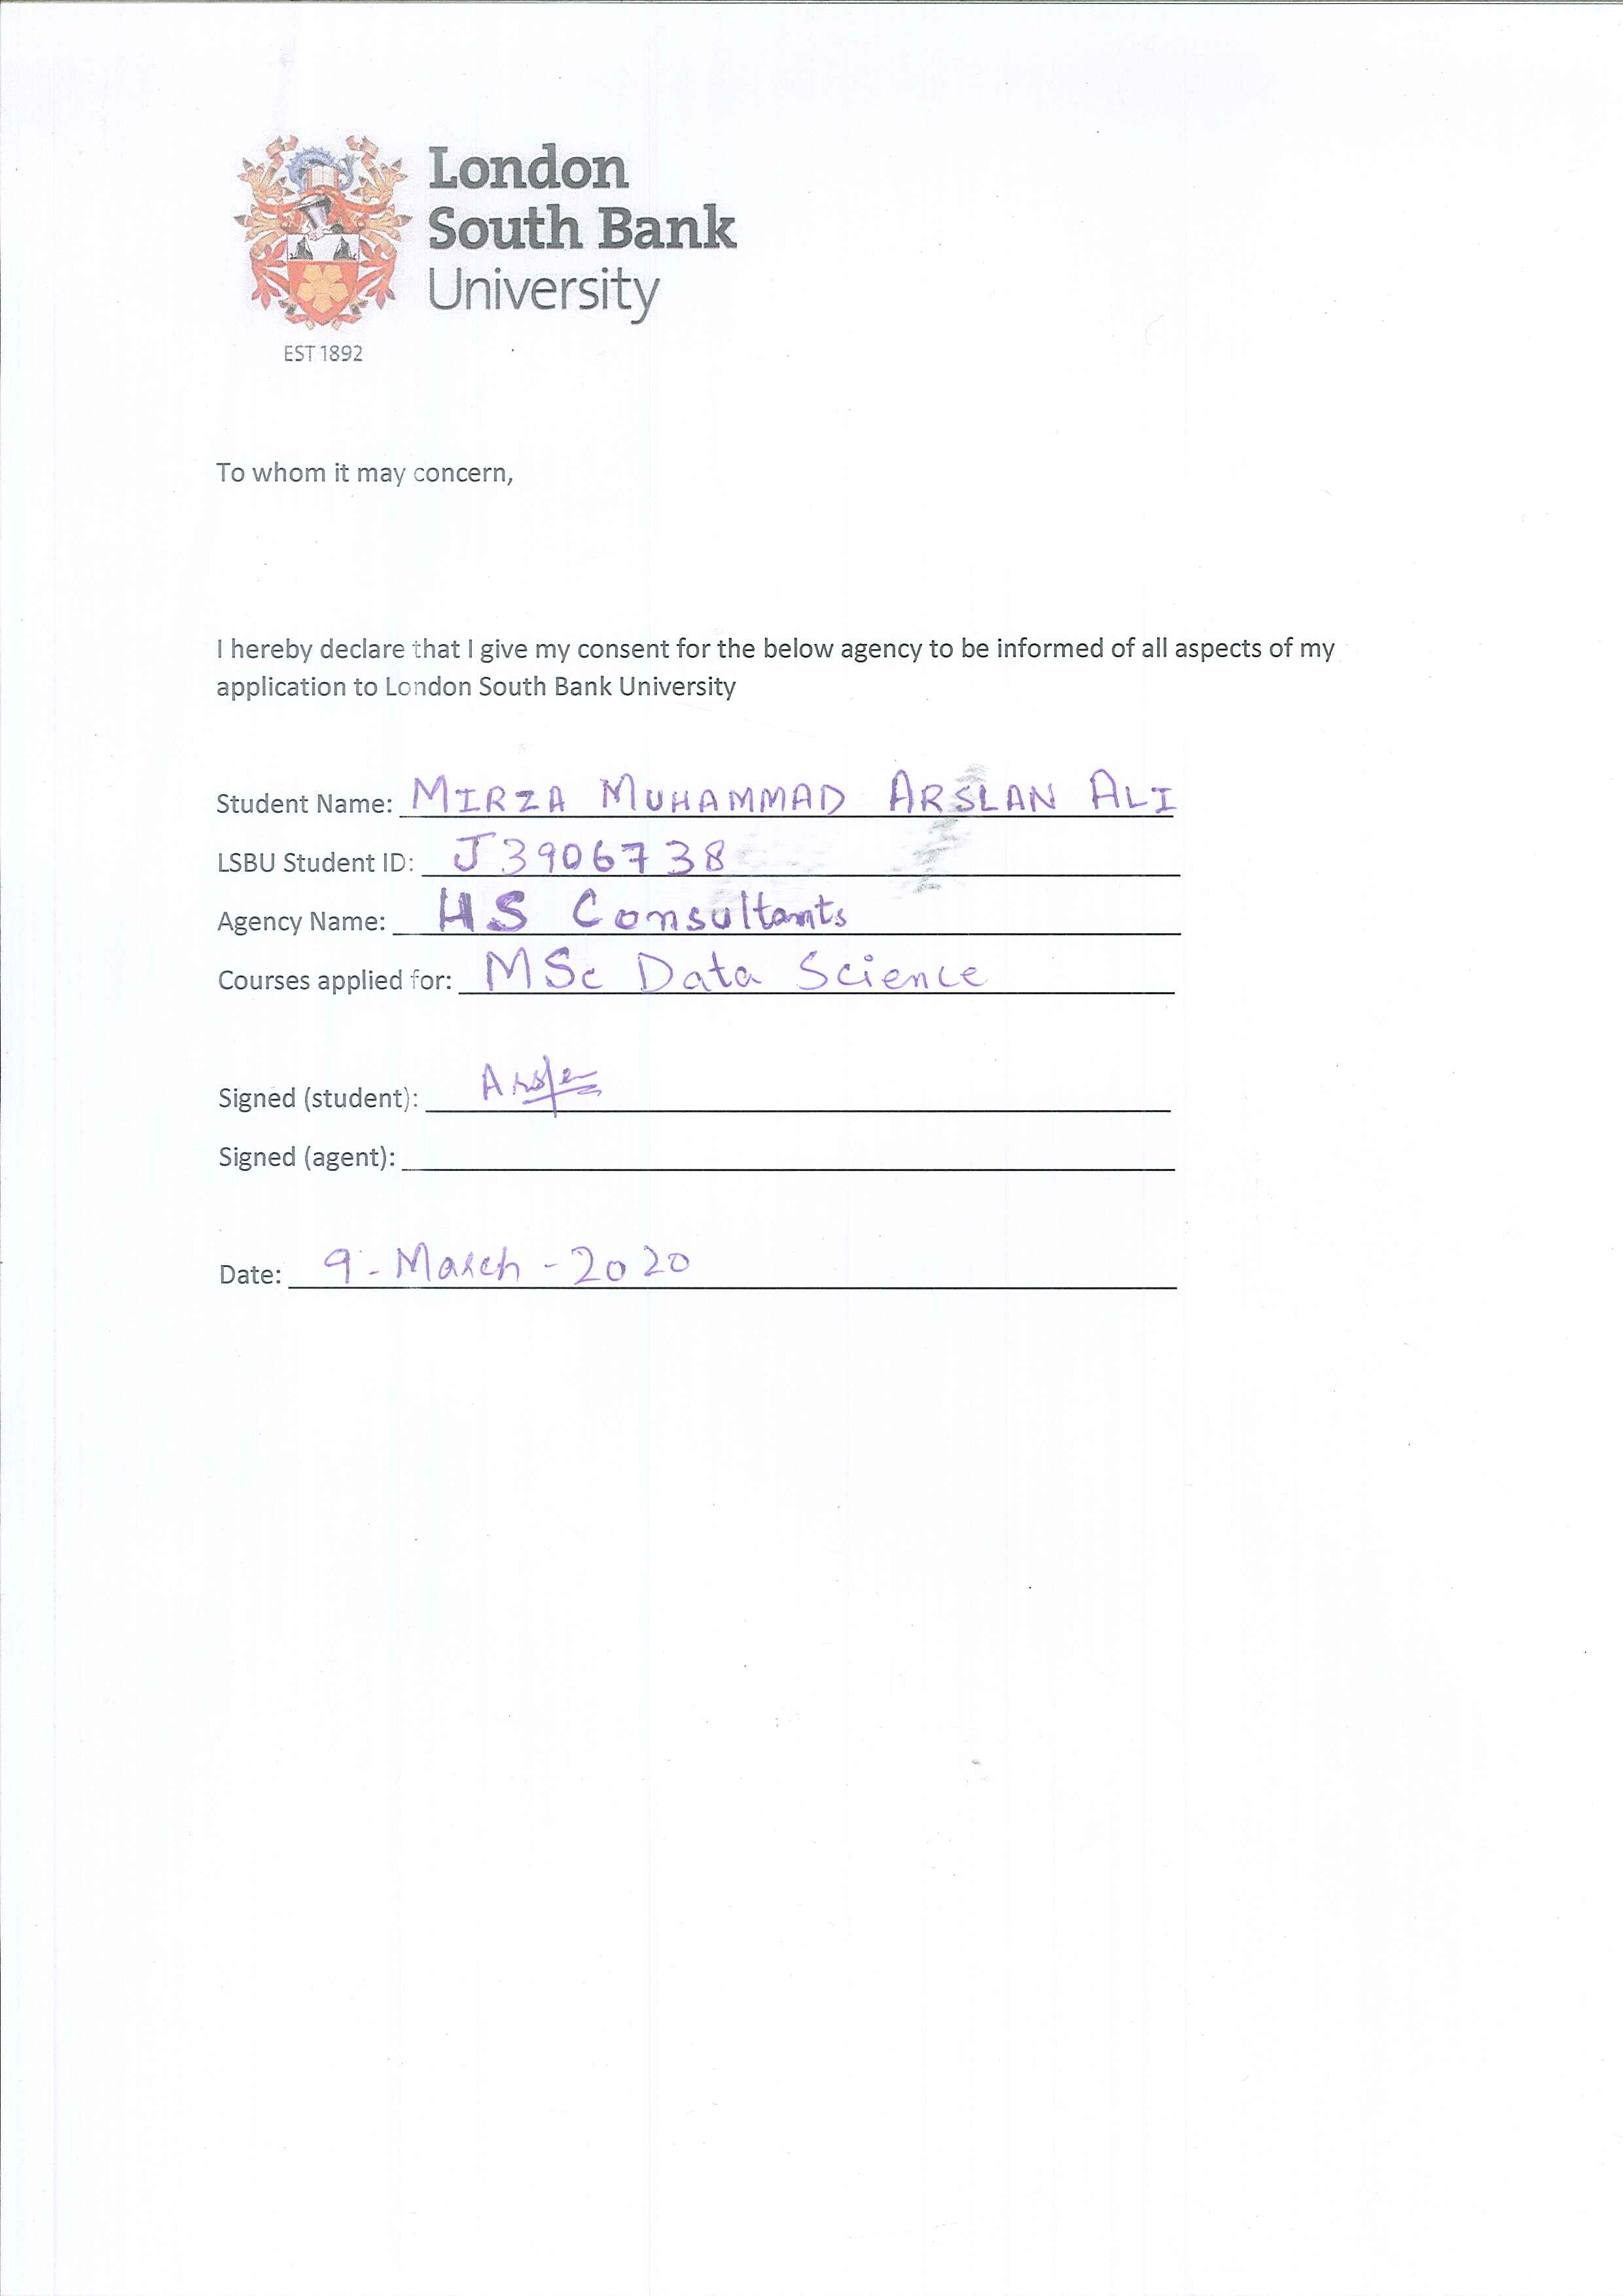 London
South Bank
University
EST 1892
To whom it may concern,
I hereby declare that I give my consent for the below agency to be informed of all aspects of my
application to London South Bank University
Student Name: MIRZA MUHAMMAD ARSLAN ALI
LSBU Student ID: J3906738
Agency Name: HS Consultants
Courses applied for: MSc Data Science
Signed (student):
Signed (agent):
Date: 9-March-2020